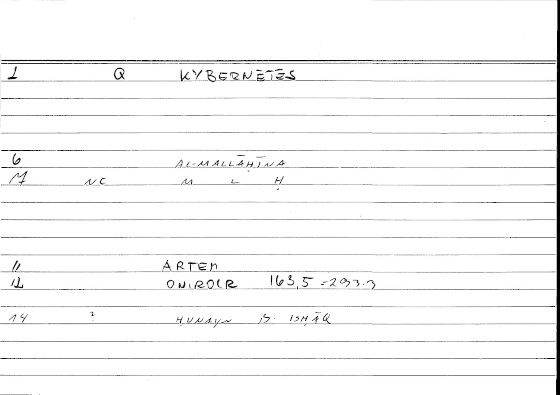 1 Q KYBERNĒTĒS
6 AL-MALLĀḤĪNA
M NC M L Ḥ
11 ARTEM
12 ONIROCR 163,5 = 293.3
14 ? ḤUNAYN B. ISḤĀQ